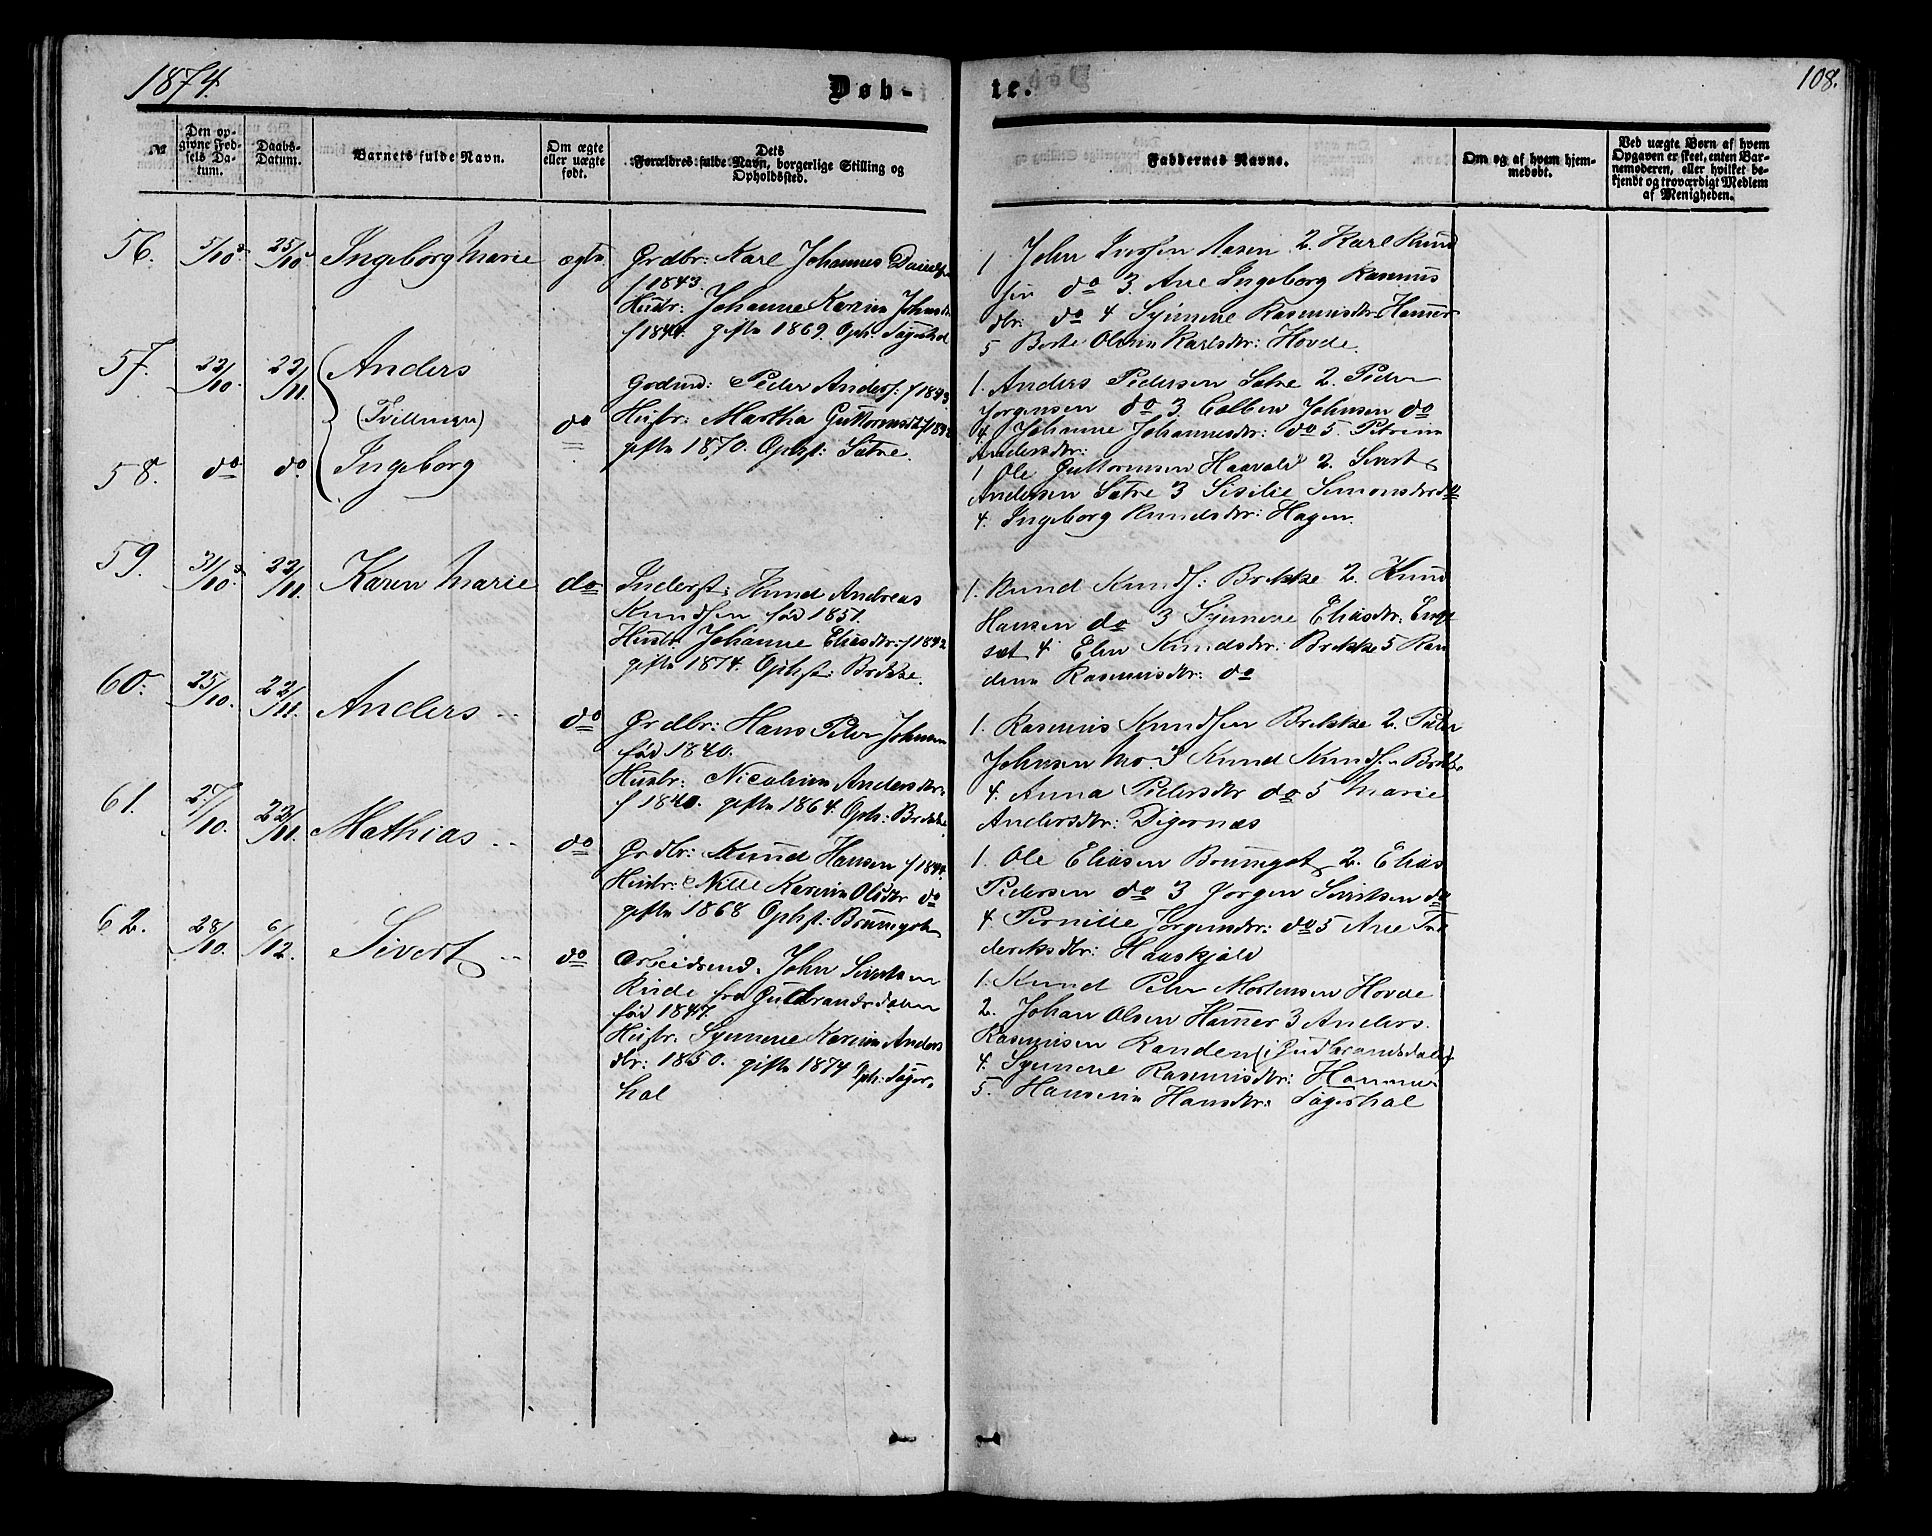 1874.
Døb-
te.
108.
№
Den op-
givne Fød-
sels Da-
tum.
Daabs-
Datum.
Barnets fulde Navn.
Om ægte
eller uægte
født.
Dets
Forældres fulde Navn, borgerlige Stilling og
Opholdssted.
Faddernes Navne.
Om og af hvem hjem-
medøbt.
Ved uægte Børn af hvem
Opgaven er skeet, enten Bar-
nemoderen, eller hvilket be-
kjendt og troværdigt Medlem
af Menigheden.
56. 5/10. 25/10 Ingeborg Marie ægte
Grdbr: Karl Johannes Daniels
f 1843.
Hustr: Johanne Karine Johnsdr
f 1844. gifte 1869. Oph:
1 John Iversen Aasen 2. Karl Knud
sen do 3. Ane Ingeborg Rasmus
dtr: do 4 Synneve Rasmusdtr: Hamer
5 Berte Oline Karlsdtr: Hovde.
57. 22/10. 22/11. Anders
(Tvillinger) do
58. do do Ingeborg
Godmd: Peder Anders: f 1843
Hustr: Martha Guttormsdtr f
gifte 1870. Ophst: Sætre.
1. Anders Pedersen Sætre 2. Peder
Jørgensen do 3. Colben Johnsen do
4. Johanne Johannesdtr: do 5. Petrine
Andersdtr:
1 Ole Guttormsen Haavold 2. Sivert
Andersen Sætre 3 Sisilie Simonsdtr do
4. Ingeborg Knudsdtr: Hagen.
59. 31/10. 22/11. Karen Marie do
Inderst: Knud Andreas
Knudsen fød 1851.
Hustr. Johanne Eliasdtr: f 1842
gifte 1874. Ophst: Brekke.
1. Knud Knuds: Brekke 2. Knud
Hansen do 3 Synneve Eliasdtr: Eng
set 4 Elen Knudsdtr: Brekke 5 Ran
dine Rasmusdtr: do
60. 25/10. 22/11. Anders do
Grdbr: Hans Peter Johnsen
fød 1840.
Hustr: Nicoline Andersdtr:
f 1840. gifte 1864. Oph: Brekke
1. Rasmus Knudsen Brekke 2. Peder
Johnsen Mo 3 Knud Knuds: Brekke
4. Anna Pedersdtr do 5 Marie
Andersdtr: Digernæs
61. 27/10. 22/11. Mathias do
Grdbr: Knud Hansen f 1844.
Hustr: Nille Karine Olsdtr do
gifte 1868 Ophst: Brunngot
1. Ole Eliasen Brunngot 2. Elias
Pedersen do 3 Jørgen Sivertsen do
4. Pernille Jørgensdtr: do 5 Ane Fre
deriksdtr: Hauskjold
62. 28/10. 6/12. Sivert do
Arbeidsmd. John Sivertsen
Rude fra Gudbrandsdalen
fød 1847.
Hustr. Synneve Karine Anders
dtr: 1850. gifte 1874 Oph: Søger-
hol
1. Knud Peter Mortensen Hovde
2. Johan Olsen Hamer 3 Anders
Rasmusen Randen (i Gudbrandsdalen)
4. Synneve Rasmusdtr: Hammer
5. Hansine Hansdtr: Søgerhol